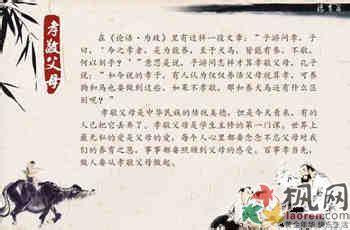 孝敬父母
在《论语·为政》里有这样一段文章：“子游问孝，子
曰，‘今之孝者，是为能养，至于犬马，皆能有养，不敬，
何以别乎？’意思是说，子游问怎样才算孝敬父母，孔子
说：“如今说的孝子，有人认为仅仅养活父母就算孝，可养
狗和马也要费到饱，如若不孝不敬，那和养犬马还有什么区
别呢？”
孝敬父母是中华民族的传统美德，但是今天看来，有的
人已把它丢弃了。孝敬父母是学生主修的第一门课，世界上
最无私的爱是父母的爱，每个人心里都要念念不忘父母对我
们的养育之恩，事事都要照顾到父母的感受。百事孝当先，
做人要从孝敬父母做起。
枫网
laoren.com